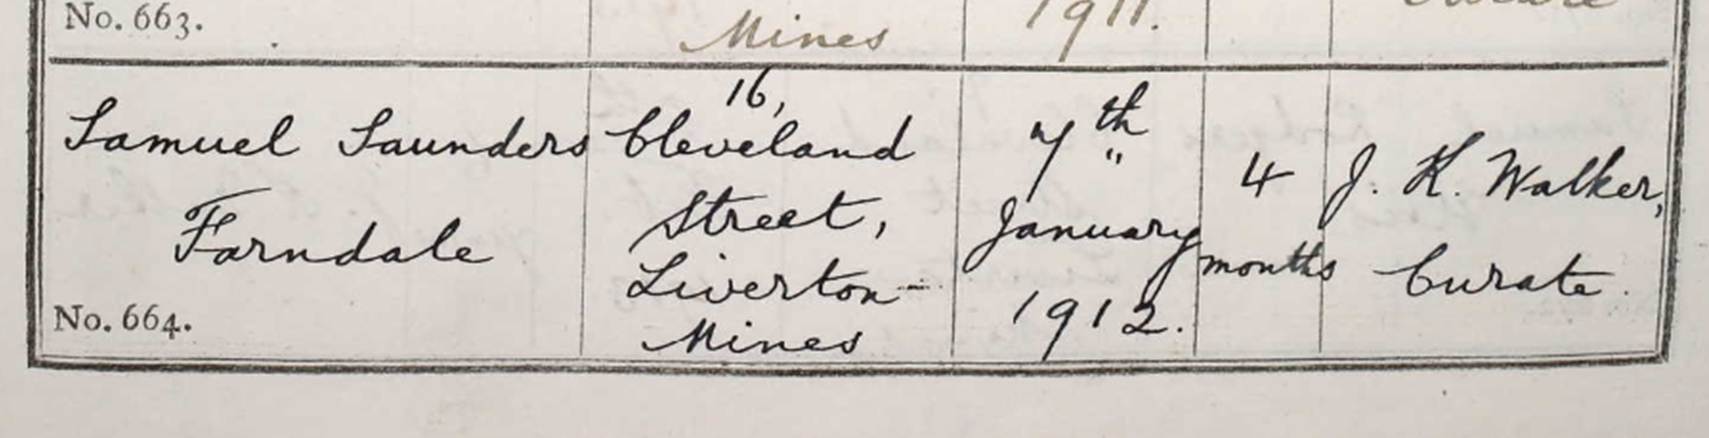 No. 663.
Mines
1911.
Samuel Saunders
Farndale
No. 664.
16,
Cleveland
Street,
Liverton-
Mines
7th
January
1912.
4
months
J. K. Walker,
Curate.